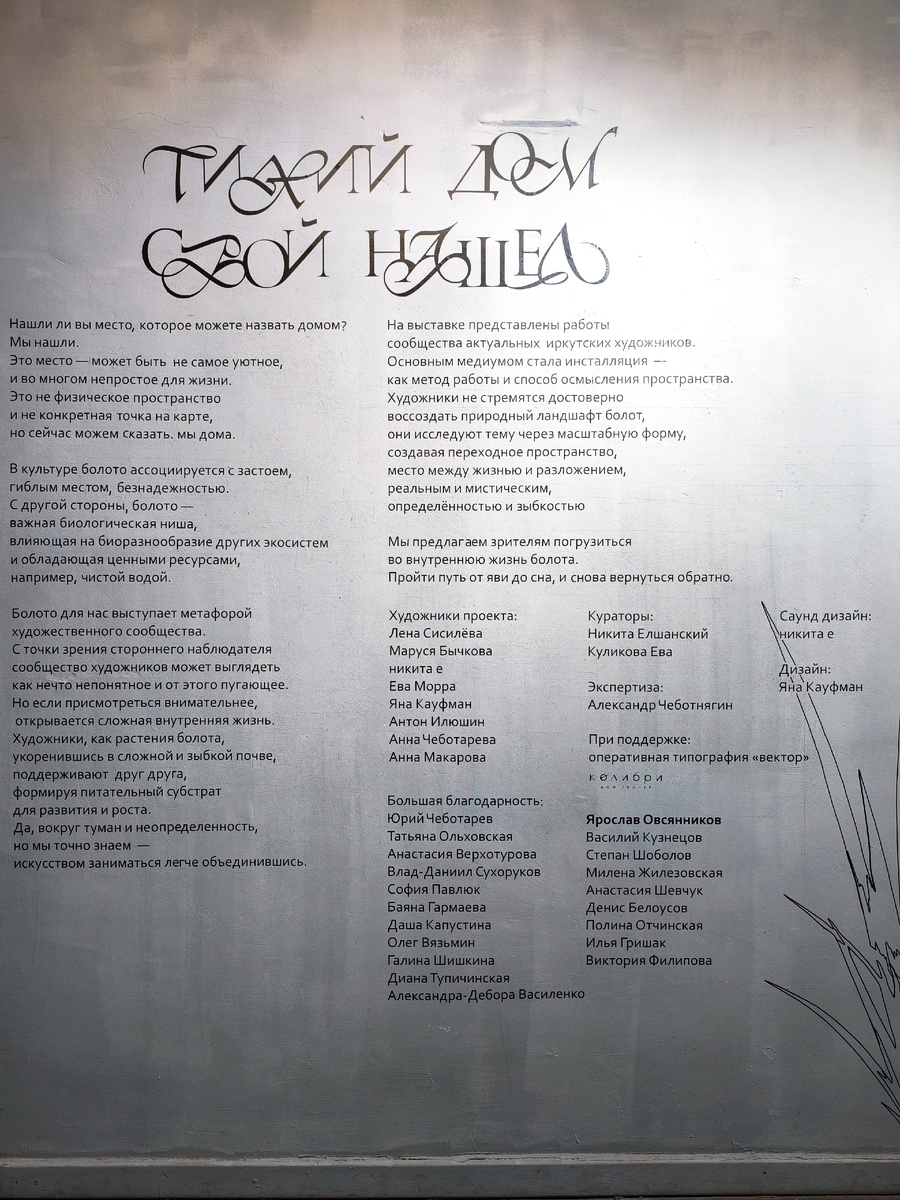 ТИХИЙ ДОМ
СВОЙ НАШЕЛ
Нашли ли вы место, которое можете назвать домом?
Мы нашли.
Это место — может быть не самое уютное,
и во многом непростое для жизни.
Это не физическое пространство
и не конкретная точка на карте,
но сейчас можем сказать. мы дома.
В культуре болото ассоциируется с застоем,
гиблым местом, безнадежностью.
С другой стороны, болото —
важная биологическая ниша,
влияющая на биоразнообразие других экосистем
и обладающая ценными ресурсами,
например, чистой водой.
Болото для нас выступает метафорой
художественного сообщества.
С точки зрения стороннего наблюдателя
сообщество художников может выглядеть
как нечто непонятное и от этого пугающее.
Но если присмотреться внимательнее,
открывается сложная внутренняя жизнь.
Художники, как растения болота,
укоренившись в сложной и зыбкой почве,
поддерживают друг друга,
формируя питательный субстрат
для развития и роста.
Да, вокруг туман и неопределенность,
но мы точно знаем —
искусством заниматься легче объединившись.
На выставке представлены работы
сообщества актуальных иркутских художников.
Основным медиумом стала инсталляция —
как метод работы и способ осмысления пространства.
Художники не стремятся достоверно
воссоздать природный ландшафт болот,
они исследуют тему через масштабную форму,
создавая переходное пространство,
место между жизнью и разложением,
реальным и мистическим,
определённостью и зыбкостью
Мы предлагаем зрителям погрузиться
во внутреннюю жизнь болота.
Пройти путь от яви до сна, и снова вернуться обратно.
Художники проекта:
Лена Сисилёва
Маруся Бычкова
никита е
Ева Морра
Яна Кауфман
Антон Илюшин
Анна Чеботарева
Анна Макарова
Кураторы:
Никита Елшанский
Куликова Ева
Экспертиза:
Александр Чеботнягин
При поддержке:
оперативная типография «вектор»
колибри
Саунд дизайн:
никита е
Дизайн:
Яна Кауфман
Большая благодарность:
Юрий Чеботарев
Татьяна Ольховская
Анастасия Верхотурова
Влад-Даниил Сухоруков
София Павлюк
Баяна Гармаева
Даша Капустина
Олег Вязьмин
Галина Шишкина
Диана Тупичинская
Александра-Дебора Василенко
Ярослав Овсянников
Василий Кузнецов
Степан Шоболов
Милена Жилезовская
Анастасия Шевчук
Денис Белоусов
Полина Отчинская
Илья Гришак
Виктория Филипова